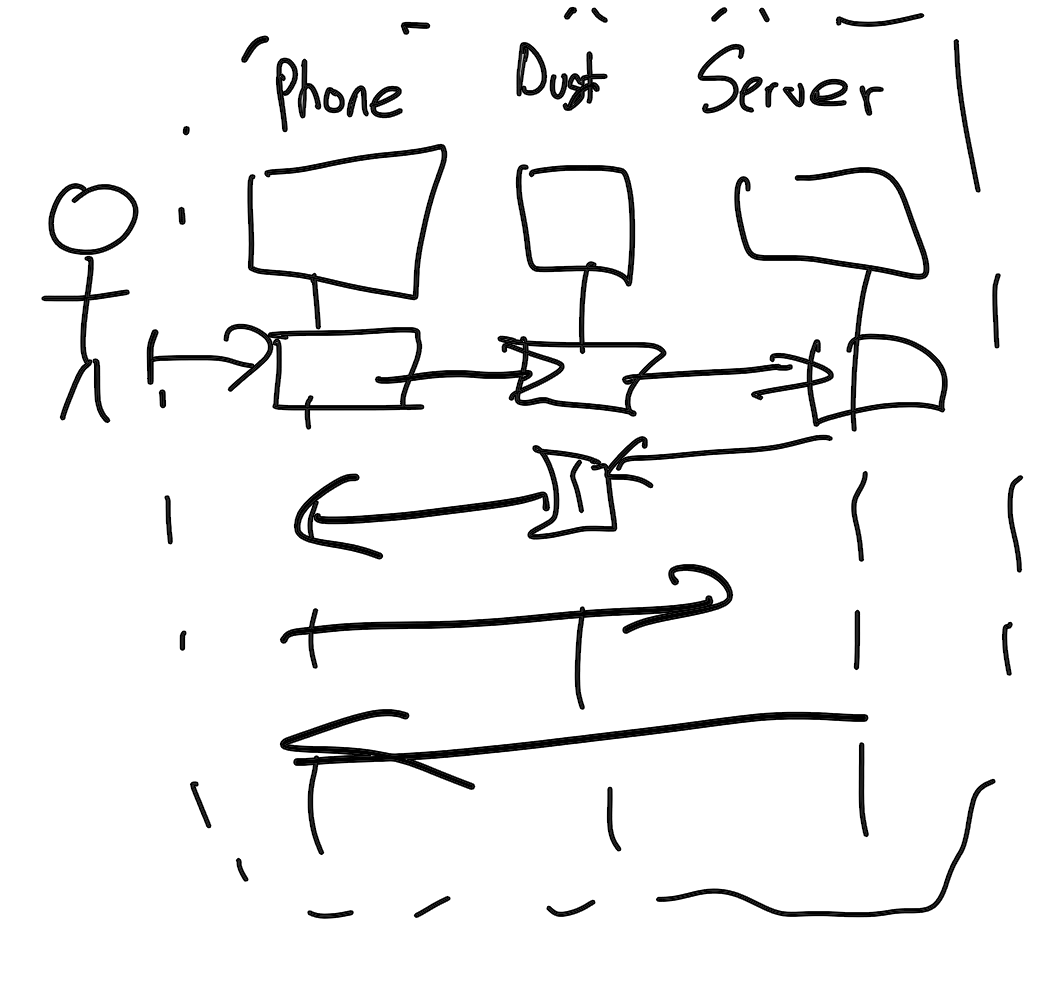 Phone Dust Server